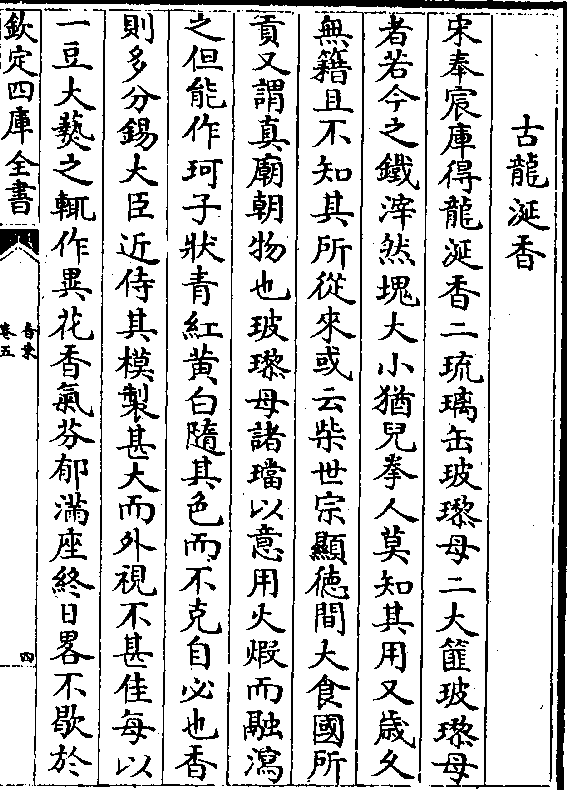 古龍涎香
宋奉宸庫得龍涎香二琉璃缶玻瓈母二大篚玻瓈母
者若今之鐵滓然塊大小猶兒拳人莫知其用又歲久
無籍且不知其所從來或云柴世宗顯徳間大食國所
貢又謂真廟朝物也玻瓈母諸璫以意用火煆而融瀉
之但能作珂子狀青紅黄白隨其色而不克自必也香
則多分錫大臣近侍其模製甚大而外視不甚佳每以
一豆大爇之輒作異花香氣芬郁滿座終日畧不歇於
欽定四庫全書
香乗
卷五
四